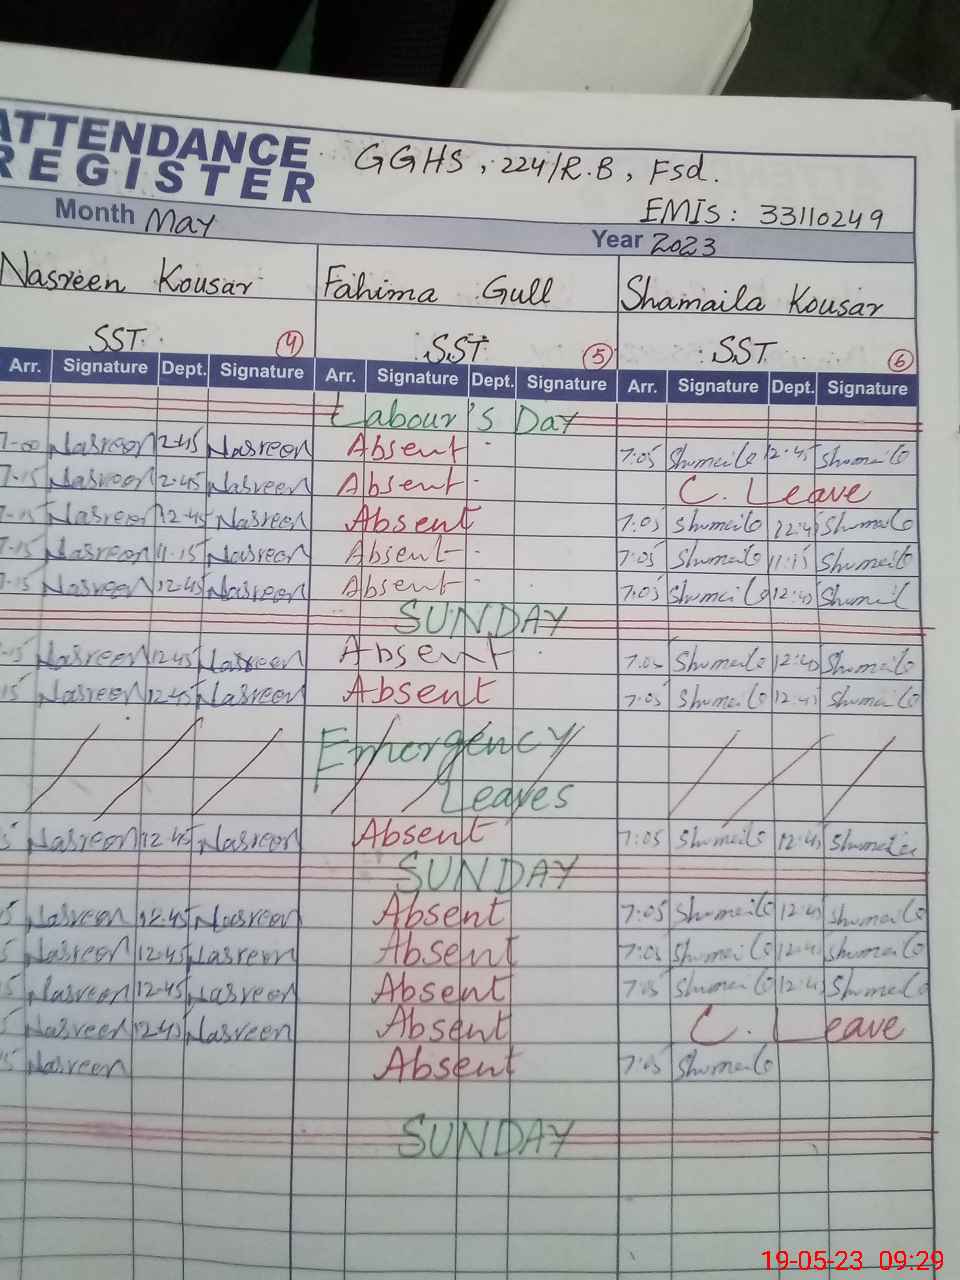 ATTENDANCE GGHS, 224/R.B, Fsd.
REGISTER EMIS: 33110249
Month May Year 2023
Nasreen Kousar Fahima Gull Shamaila Kousar
SST. 4 SST 5 SST 6
Arr. Signature Dept. Signature Arr. Signature Dept. Signature Arr. Signature Dept. Signature
Labour's Day
7-00 Nasreen 12:45 Nasreen Absent 7:05 Shumaila 12:45 Shumaila
7-15 Nasreen 2:45 Nasreen Absent C. Leave
7-15 Nasreen 12:45 Nasreen Absent 7:05 Shumaila 12:45 Shumaila
7-15 Nasreen 11:15 Nasreen Absent 7:05 Shumaila 11:15 Shumaila
7-15 Nasreen 12:45 Nasreen Absent 7:05 Shumaila 12:45
SUNDAY
15 Nasreen 12:45 Nasreen Absent 7:05 Shumaila 12:45 Shumaila
15 Nasreen 12:45 Nasreen Absent 7:05 Shumaila 12:45 Shumaila
Emergency
Leaves
5 Nasreen 12:45 Nasreen Absent 7:05 Shumaila 12:45 Shumaila
SUNDAY
5 Nasreen 12:45 Nasreen Absent 7:05 Shumaila 12:45 Shumaila
5 Nasreen 12:45 Nasreen Absent 7:05 Shumaila 12:45 Shumaila
5 Nasreen 12:45 Nasreen Absent 7:05 Shumaila 12:45 Shumaila
5 Nasreen 12:45 Nasreen Absent C. Leave
5 Nasreen Absent 7:05 Shumaila
SUNDAY
19-05-23 09:29